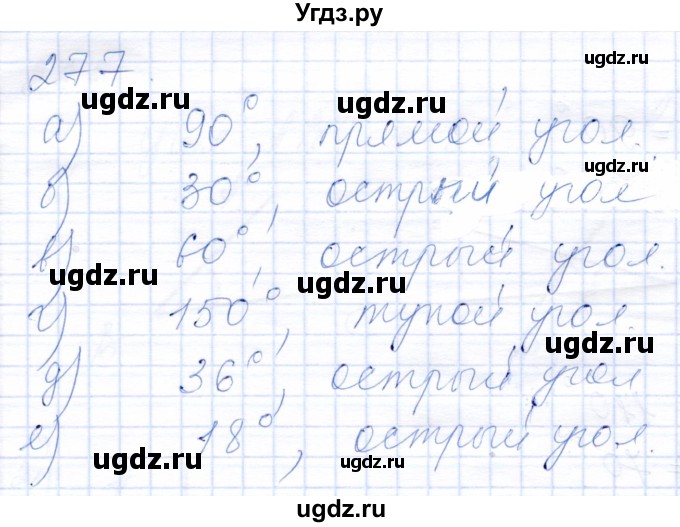 Угдз.ру
277.
а) 90°, прямой угол.
б) 30°, острый угол
в) 60°, острый угол.
г) 150°, тупой угол.
д) 36°, острый угол
е) 18°, острый угол.
ugdz.ru
ugdz.ru
ugdz.ru
ugdz.ru
ugdz.ru
ugdz.ru
ugdz.ru
ugdz.ru
ugdz.ru
ugdz.ru
ugdz.ru
ugdz.ru